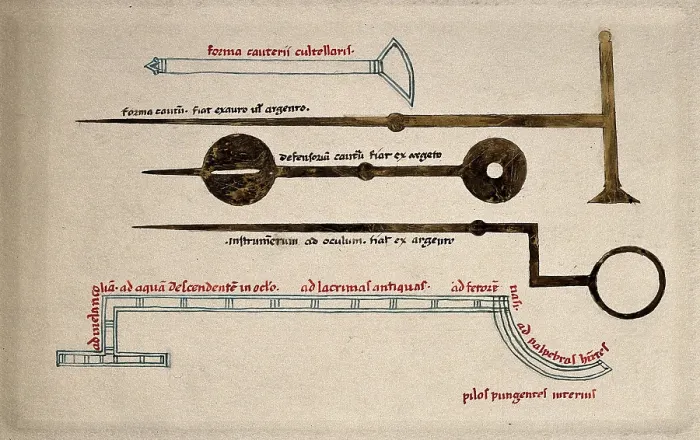 forma cauterii cultellaris.
forma cautii. fiat ex auro ul argento.
defensoriū cautii fiat ex argēto
.instrumētum ad oculum. fiat ex argento
ad melancoliā. ad aquā descendentē in oclo. ad lacrimas antiquas. ad fetorē nasi. ad palpebras hītes
pilos pungentes interius